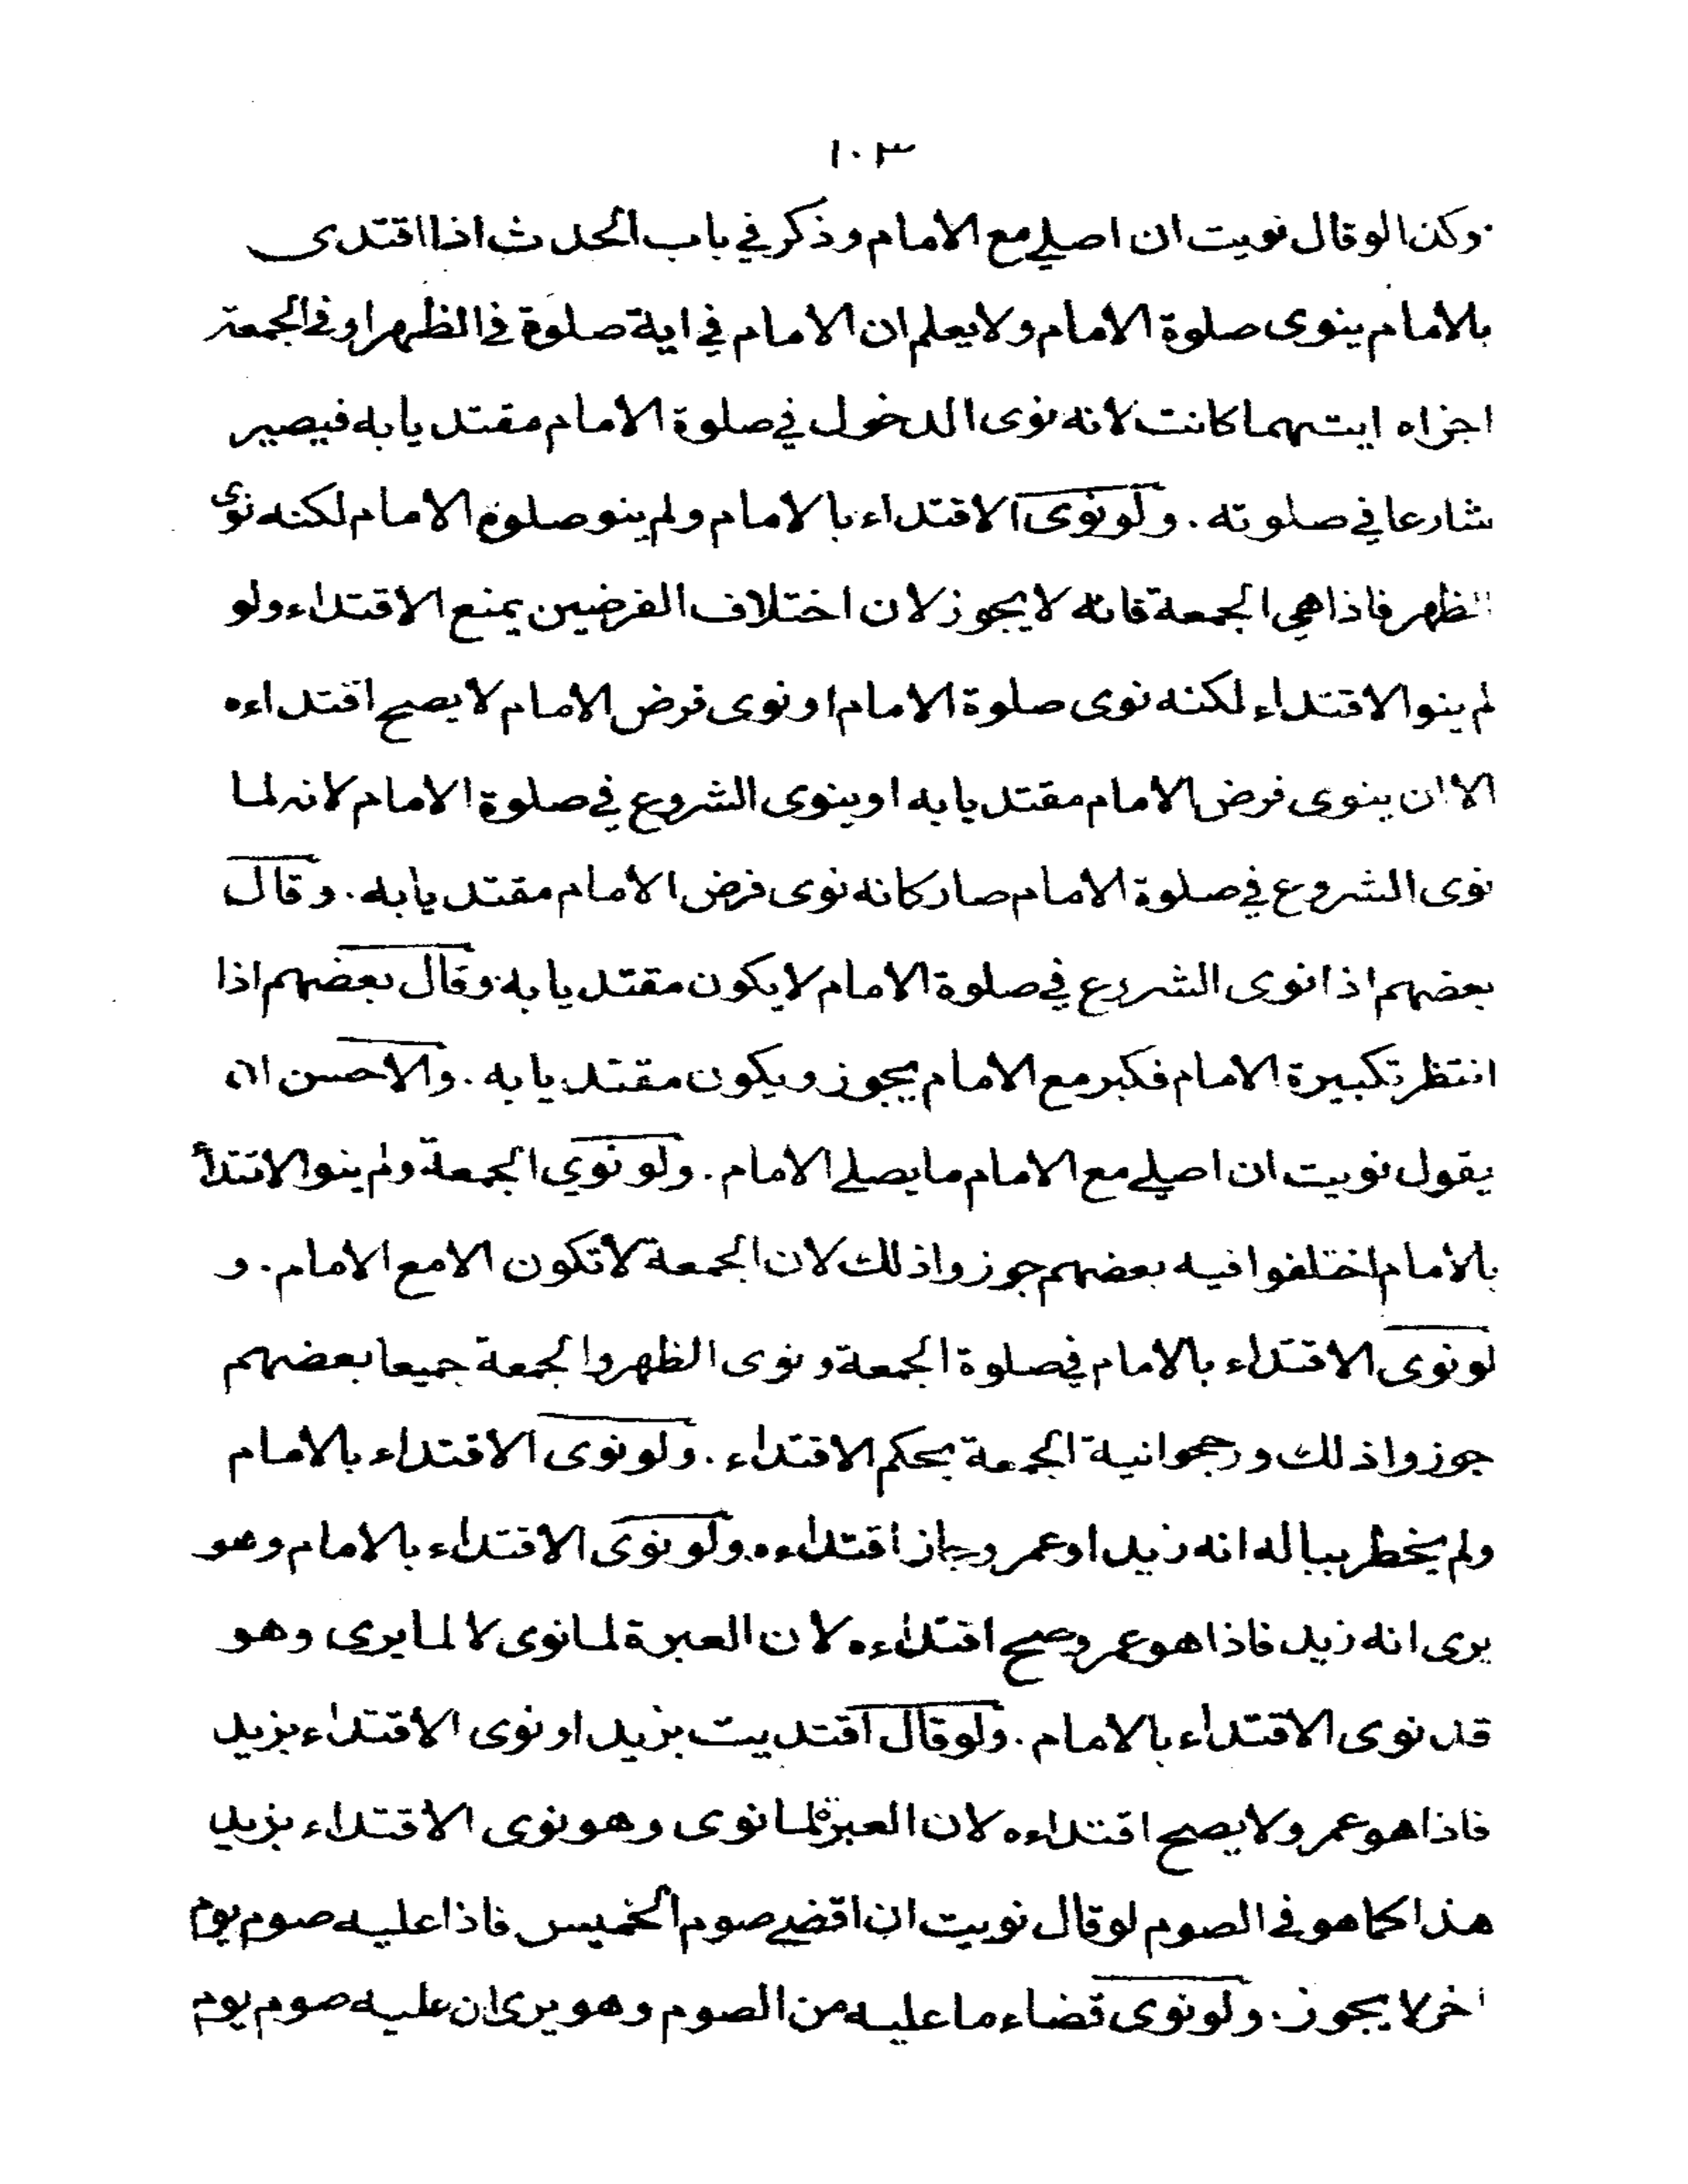 ١٠٣
وكذا لو قال نويت ان اصلي مع الامام وذكر في باب الحدث اذا اقتدى
بالامام ينوى صلوة الامام ولا يعلم ان الامام في اية صلوة في الظهر او في الجمعة
اجزاه ايتهما كانت لانه نوى الدخول في صلوة الامام مقتديا به فيصير
شارعا في صلوته . ولو نوى الاقتداء بالامام ولم ينو صلوة الامام لكنه نوى
الظهر فاذا هي الجمعة فانه لا يجوز لان اختلاف الفرضين يمنع الاقتداء ولو
لم ينو الاقتداء لكنه نوى صلوة الامام او نوى فرض الامام لا يصح اقتداءه
الا ان ينوى فرض الامام مقتديا به او ينوى الشروع في صلوة الامام لانه لما
نوى الشروع في صلوة الامام صار كانه نوى فرض الامام مقتديا به . وقال
بعضهم اذا نوى الشروع في صلوة الامام لا يكون مقتديا به وقال بعضهم اذا
انتظر تكبيرة الامام فكبر مع الامام يجوز ويكون مقتديا به . والاحسن ان
يقول نويت ان اصلي مع الامام ما يصلے الامام . ولو نوي الجمعة ولم ينو الاقتداء
بالامام اختلفوا فيه بعضهم جوزوا ذلك لان الجمعة لا تكون الا مع الامام . و
لو نوى الاقتداء بالامام في صلوة الجمعة و نوى الظهر والجمعة جميعا بعضهم
جوزوا ذلك ورجحوا نية الجمعة بحكم الاقتداء . ولو نوى الاقتداء بالامام
ولم يخطر بباله انه زيد او عمرو جاز اقتداءه ولو نوى الاقتداء بالامام وهو
يرى انه زيد فاذا هو عمرو صح اقتداءه لان العبرة لما نوى لا لما يرى وهو
قد نوى الاقتداء بالامام . ولو قال اقتديت بزيد او نوى الاقتداء بزيد
فاذا هو عمرو لا يصح اقتداءه لان العبرة لما نوى وهو نوى الاقتداء بزيد
هذا كما هو في الصوم لو قال نويت ان اقضے صوم الخميس فاذا عليه صوم يوم
اخر لا يجوز . ولو نوى قضاء ما عليه من الصوم وهو يرى ان عليه صوم يوم